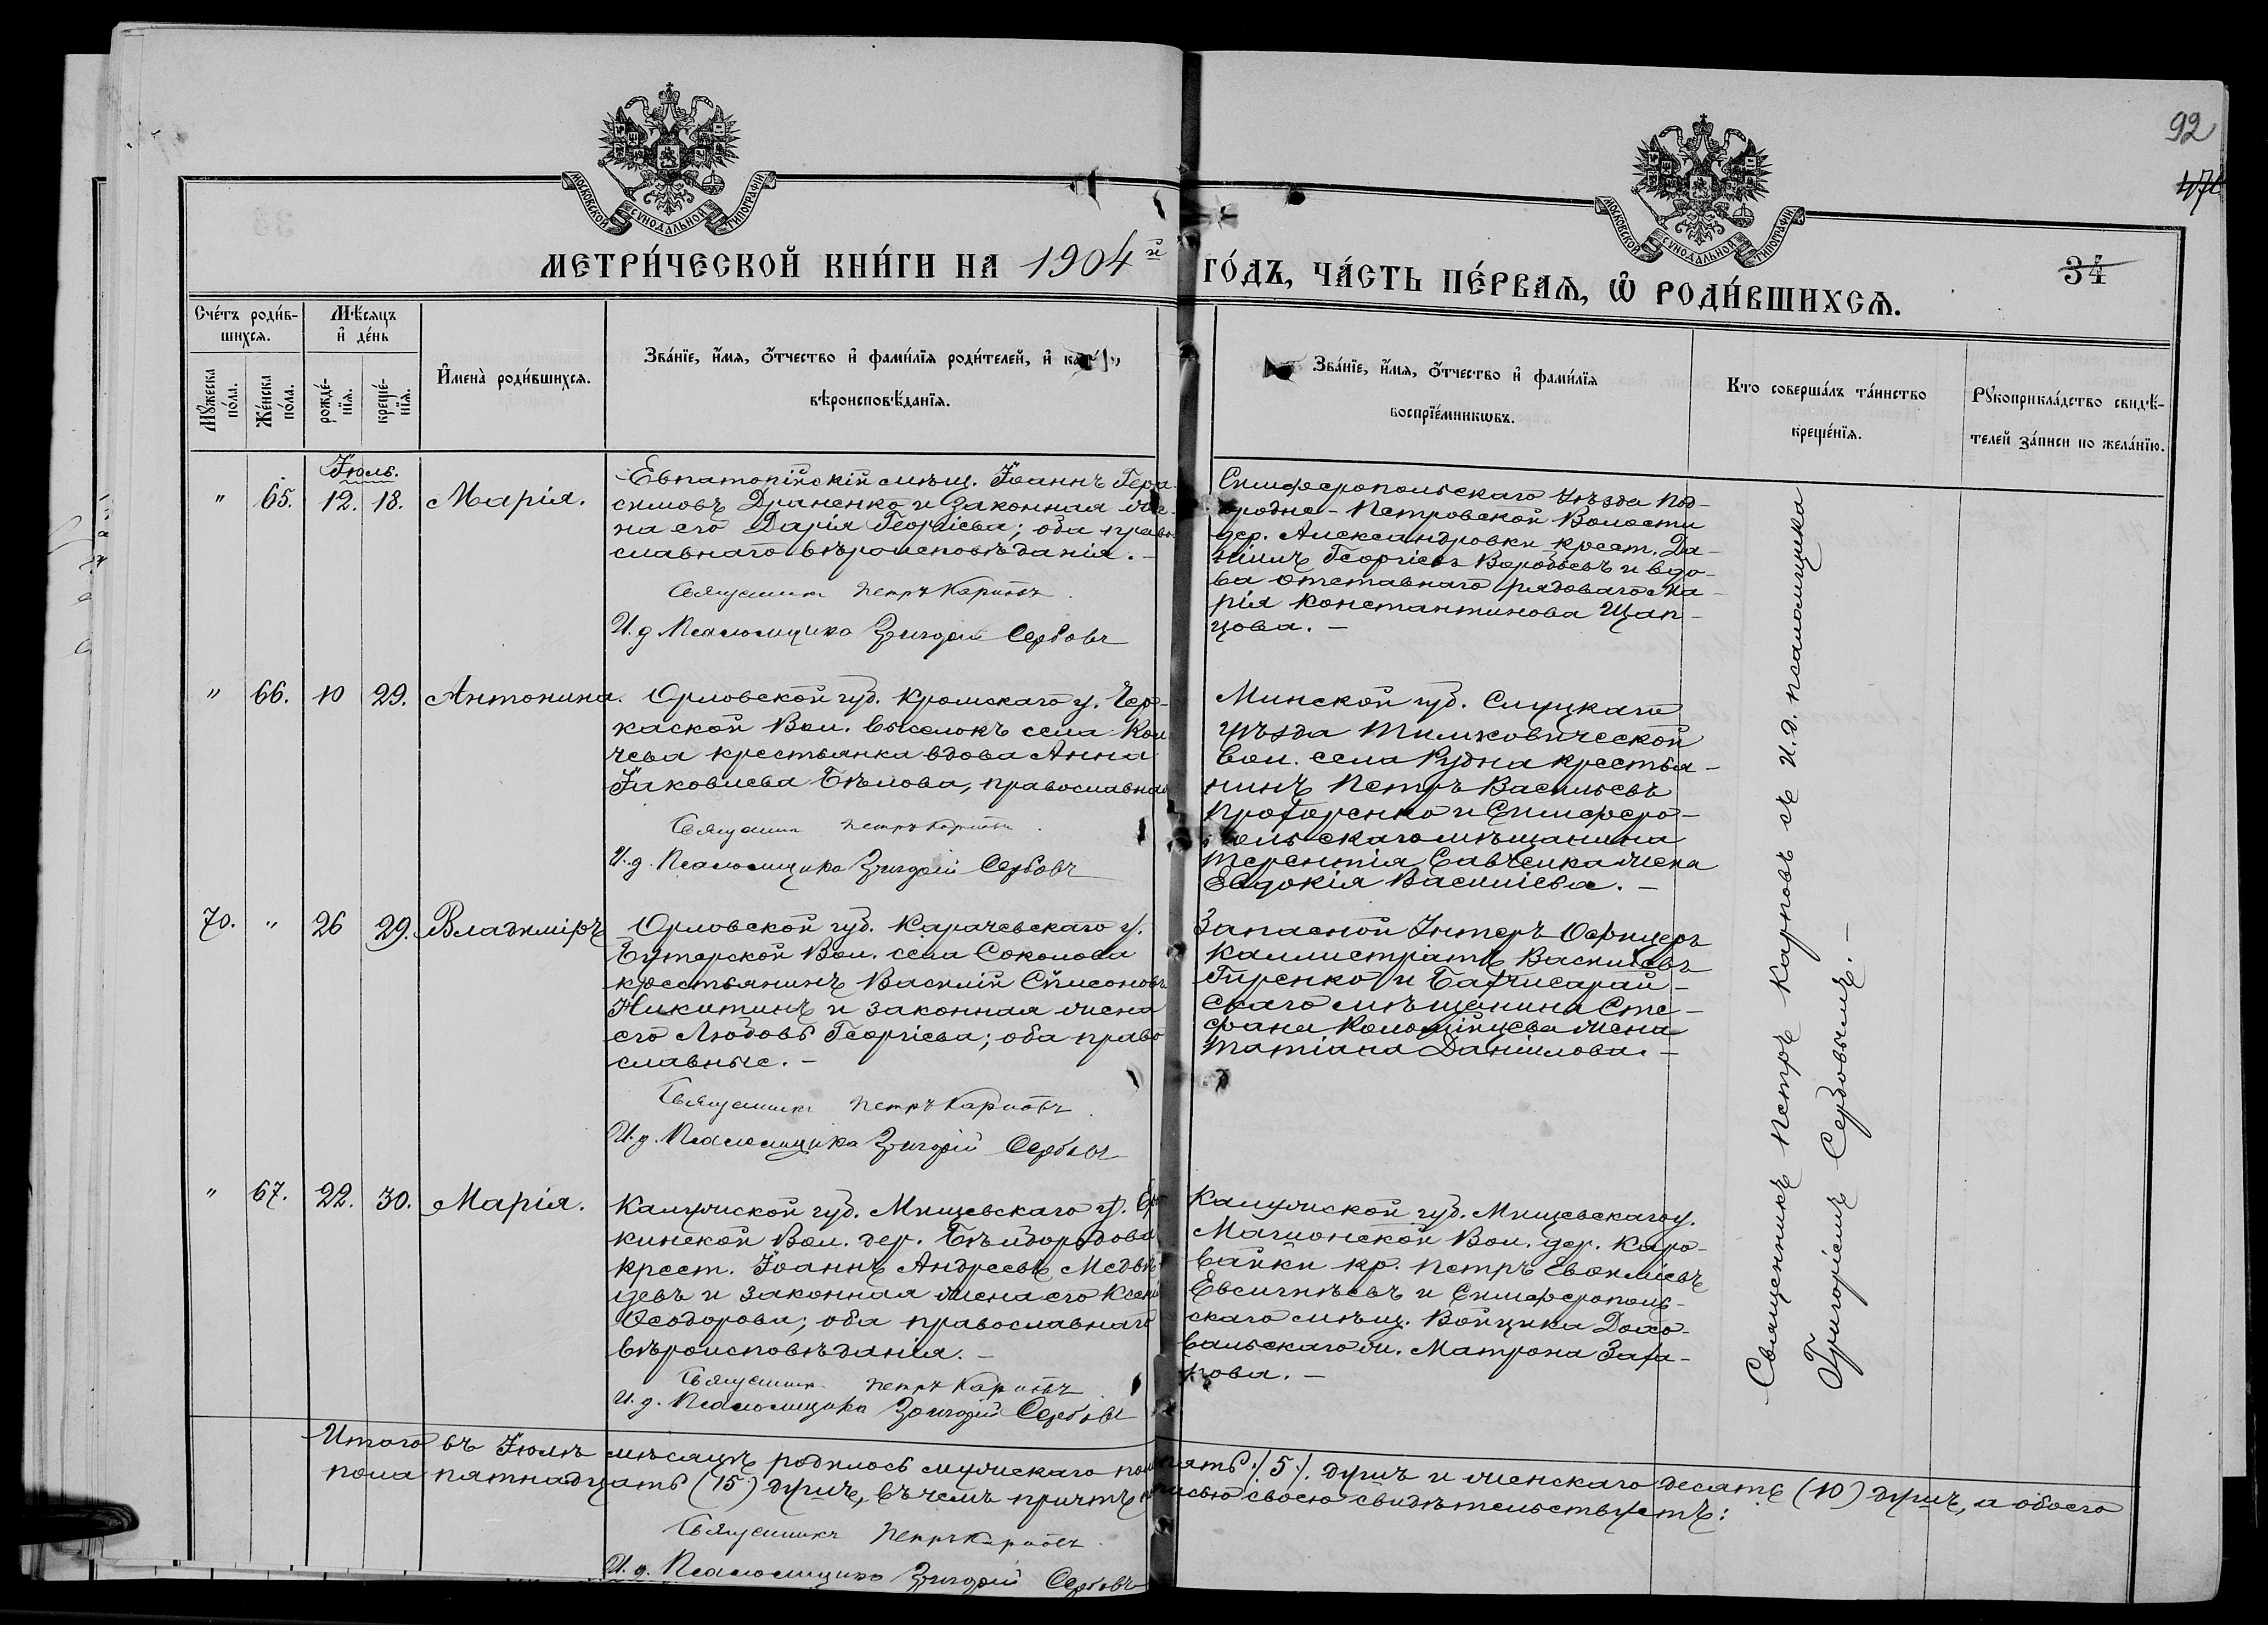 92
МОСКОВСКОЙ СѴНОДАЛЬНОЙ ТИПОГРАФІИ
МОСКОВСКОЙ СѴНОДАЛЬНОЙ ТИПОГРАФІИ
34
МЕТРИ́ЧЕСКОЙ КНИ́ГИ НА 1904й ГО́ДЪ, ЧА́СТЬ ПЕ́РВАЯ, Ѡ РОДИ́ВШИХСЯ.
Сче́тъ роди́в-
шихся.
Мѣ́сяцъ
и де́нь
Мꙋ́жеска
по́ла.
Же́нска
по́ла.
рожде́-
нїя.
креще́-
нїя.
И҆мена̀ роди́вшихся.
Зва́нїе, и҆́мя, ѻ҆́тчество и҆ фами́лїя роди́телей, и҆
вѣроисповѣ́данїя.
Зва́нїе, и҆́мя, ѻ҆́тчество и҆ фами́лїя
воспрїе́мникѡвъ.
Кто соверша́лъ та́инство
креще́нїя.
Рꙋкоприкла́дство свидѣ́-
телей за́писи по жела́нїю.
Іюль.
" 65. 12. 18. Марія.
Евпаторійскій мѣщ. Іоаннъ Гера-
симовъ Драненко и законная же-
на его Дарія Георгіева; оба право-
славнаго вѣроисповѣданія. –
Священникъ Петръ Карповъ
И. д. Псаломщика Григорій Сербовъ
Симферопольскаго уѣзда Под-
городне-Петровской Волости
дер. Александровки крест. Да-
ніилъ Георгіевъ Воробьевъ и вдо-
ва отставнаго рядоваго Ма-
рія Константинова Щап-
цова. –
" 66. 10 29. Антонина.
Орловской губ. Кромскаго у. Чер-
каской Вол. выселокъ села
крестьянка вдова Анна
Іаковлева Бѣлова, православная
Священникъ Петръ Карповъ
И. д. Псаломщика Григорій Сербовъ
Минской губ. Слуцкаго
уѣзда Тимковической
вол. села Рудна крестья-
нинъ Петръ Васильевъ
и Симферо-
польскаго мѣщанина
Терентія Савченка жена
Евдокія Василіева. –
70. " 26 29. Владиміръ
Орловской губ. Карачевскаго у.
Вол. села Соколова
крестьянинъ Василій Сѵмеоновъ
Никитинъ и законная жена
его Любовь Георгіева; оба право
славные. –
Священникъ Петръ Карповъ
И. д. Псаломщика Григорій Сербовъ
Запасной Унтеръ Офицеръ
Каллистратъ Василіевъ
Гиренко и Бахчисарай-
скаго мѣщанина Сте-
фана Коломійцева жена
Татіана Даніилова. –
" 67. 22. 30. Марія.
Калужской губ. Мищевскаго у.
кинской Вол. дер.
крест. Іоаннъ Андреевъ Медвѣ-
цевъ и законная жена его Ксенія
Ѳеодорова; оба православнаго
вѣроисповѣданія. –
Священникъ Петръ Карповъ
И. д. Псаломщика Григорій Сербовъ
Калужской губ. Мищевскаго у.
Вол. дер. Каро-
вайки кр. Петръ Евѳиміевъ
Евсигнѣевъ и Симферополь-
скаго мѣщ. Войцика
вальскаго ж. Матрона Заха-
рова. –
Священникъ Петръ Карповъ съ И. д. псаломщика
Григоріемъ Сербовымъ. –
Итого въ Іюлѣ мѣсяцѣ родилось мужскаго пола пять /5/ душъ и женскаго десять (10) душъ, а обоего
пола пятнадцать (15) душъ, въ чемъ причтъ подписью своею свидѣтельствуетъ:
Священникъ Петръ Карповъ
И. д. Псаломщика Григорій Сербовъ